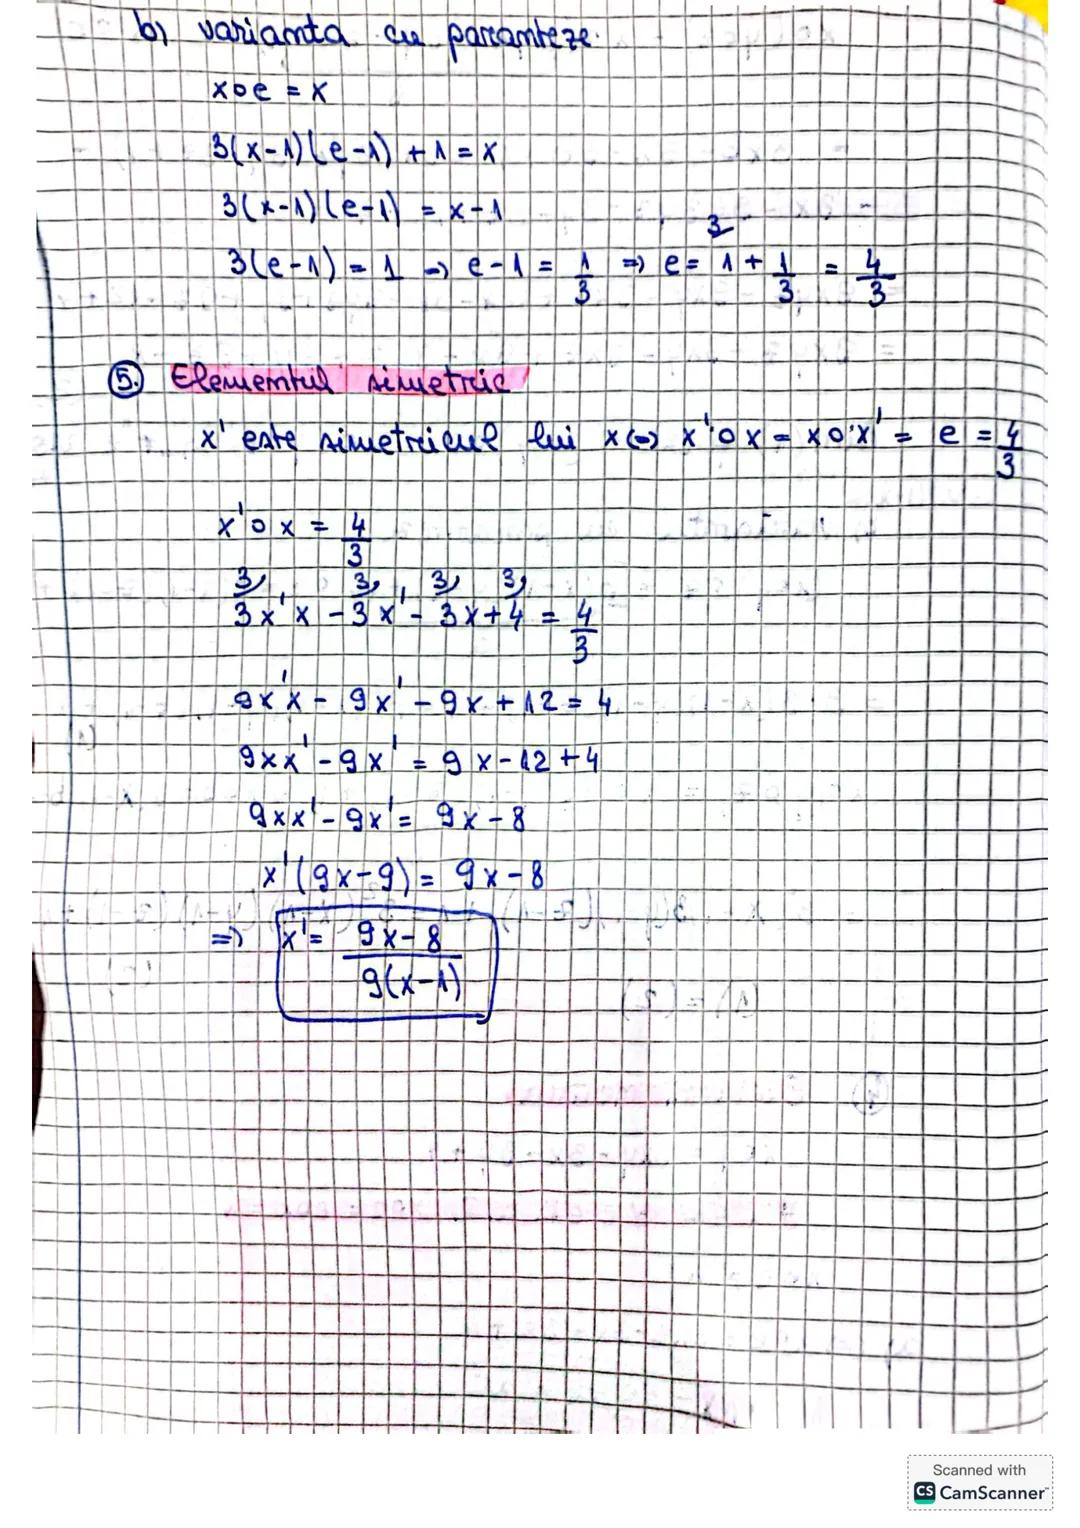 b) varianta cu paranteze.
x∘e = x
3(x-1)(e-1) + 1 = x
3(x-1)(e-1) = x-1
3(e-1) = 1 => e-1 = 1/3 => e = ³⁾1 + 1/3 = 4/3
5. Elementul simetric
x' este simetricul lui x <=> x'∘x = x∘x' = e = 4/3
x'∘x = 4/3
³⁾3x'x - ³⁾3x' - ³⁾3x + ³⁾4 = 4/3
9x'x - 9x' - 9x + 12 = 4
9xx' - 9x' = 9x - 12 + 4
9xx' - 9x' = 9x - 8
x'(9x-9) = 9x-8
=> x' = 9x-8 / 9(x-1)
Scanned with
CS CamScanner